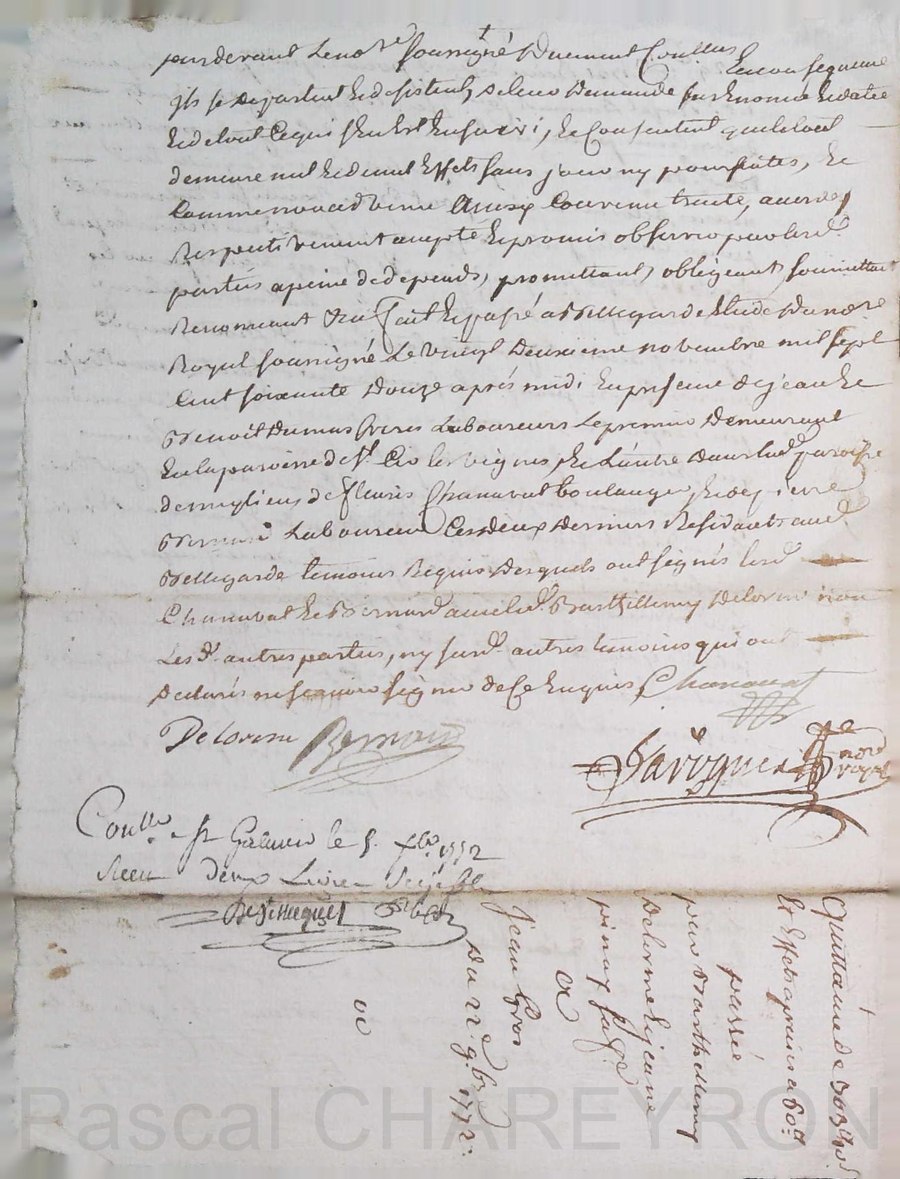 pardevant le no.re soussigné duement Conllée En consequence
ils se departent et desistent, de leur demande
et de tout ce qui s'en est ensuivi, et Consentent que le tout
demeure nul et de nul Effet sans jour ny poursuites, et
Comme nous ainsy Convenu traité, accordé
Respectivement accepté et promis observer par lesd.
parties a peine de depends, promettant, obligeant soumettant
Renonceant &a fait et passé a Bellegarde Etude du no.re
Royal soussigné le vingt deuxieme novembre mil sept
Cent soixante douze aprés midi En presence de jean et
Benoit Dumas freres Laboureurs le premier demeurant
En la paroisse de st. Cir les vignes et l'autre dans lad. paroisse
de fleuris Chanavat boulanger, et de pierre
Bernard Laboureur Ces deux derniers Residants aud.
Bellegarde temoins Requis desquels ont signés lesd.
Chanavat et Bernard avec led. Barthellemy Delorme non
Les d. autres parties, ny lesd. autres temoins qui ont
declarés ne scavoir signer de Ce Enquis Chanavat
Delorme Bernard
no.re royal
Conllé a St Galmier le 5. 1772
Receu deux Livres
Quittance de
et Effets
passée
par Barthellemy
Delorme et jeanne
pinay sa fe.
a
Jean Gros
Du 22.e 9.bre 1772.